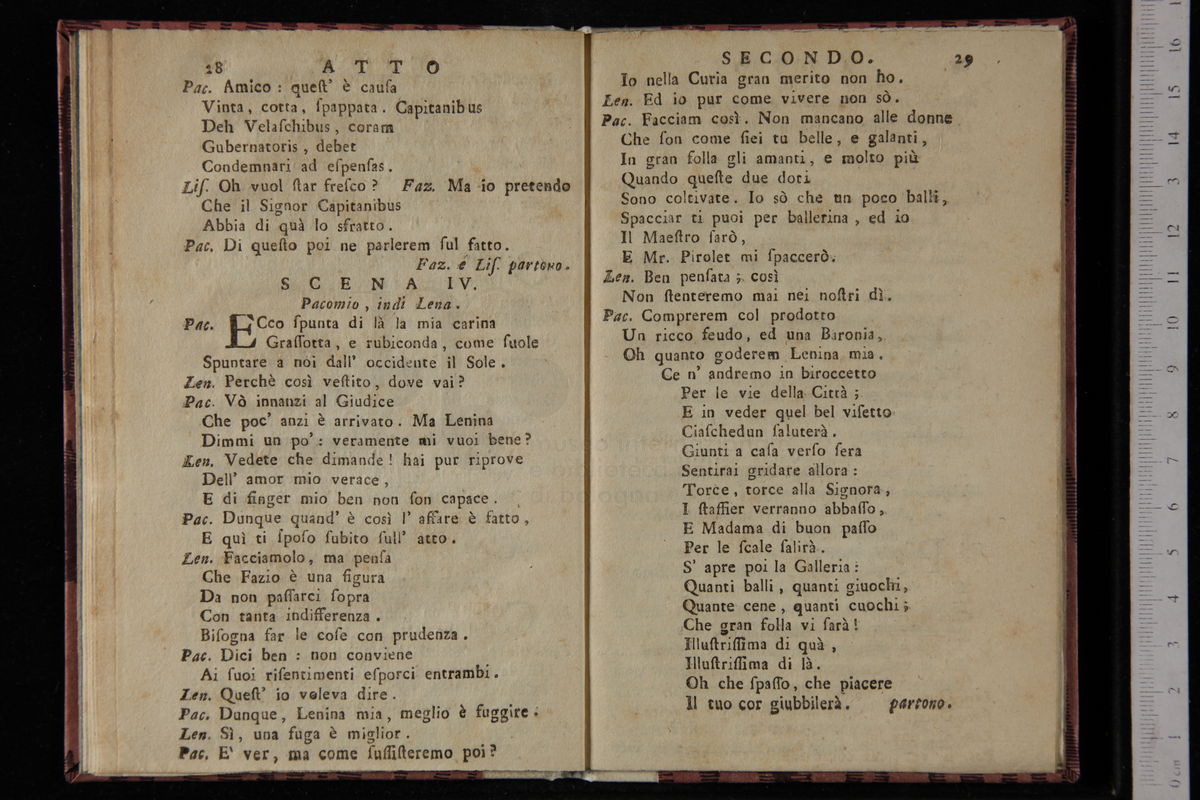 28 ATTO
Pac. Amico : queſt' è cauſa
Vinta, cotta, ſpappata. Capitanibus
Deh Velaſchibus, coram
Gubernatoris, debet
Condemnari ad eſpenſas.
Liſ. Oh vuol ſtar freſco ? Faz. Ma io pretendo
Che il Signor Capitanibus
Abbia di quà lo sfratto.
Pac. Di queſto poi ne parlerem ſul fatto.
Faz. é Liſ. partono.
SCENA IV.
Pacomio, indi Lena.
Pac. ECco ſpunta di là la mia carina
Graſſotta, e rubiconda, come ſuole
Spuntare a noi dall' occidente il Sole.
Len. Perchè così veſtito, dove vai?
Pac. Vò innanzi al Giudice
Che poc' anzi è arrivato. Ma Lenina
Dimmi un po' : veramente mi vuoi bene?
Len. Vedete che dimande! hai pur riprove
Dell' amor mio verace,
E di finger mio ben non ſon capace.
Pac. Dunque quand' è così l' affare è fatto,
E quì ti ſpoſo ſubito ſull' atto.
Len. Facciamolo, ma penſa
Che Fazio è una figura
Da non paſſarci ſopra
Con tanta indifferenza.
Biſogna far le coſe con prudenza.
Pac. Dici ben : non conviene
Ai ſuoi riſentimenti eſporci entrambi.
Len. Queſt' io voleva dire.
Pac. Dunque, Lenina mia, meglio è fuggire.
Len. Sì, una fuga è miglior.
Pac. E' ver, ma come ſuſſiſteremo poi?
SECONDO. 29
Io nella Curia gran merito non ho.
Len. Ed io pur come vivere non sò.
Pac. Facciam così. Non mancano alle donne
Che ſon come ſiei tu belle, e galanti,
In gran folla gli amanti, e molto più
Quando queſte due doti
Sono coltivate. Io sò che un poco balli,
Spacciar ti puoi per ballerina, ed io
Il Maeſtro ſarò,
E Mr. Pirolet mi ſpaccerò.
Len. Ben penſata; così
Non ſtenteremo mai nei noſtri dì.
Pac. Comprerem col prodotto
Un ricco feudo, ed una Baronia,
Oh quanto goderem Lenina mia.
Ce n' andremo in biroccetto
Per le vie della Città ;
E in veder quel bel viſetto
Ciaſchedun ſaluterà.
Giunti a caſa verſo ſera
Sentirai gridare allora :
Torce, torce alla Signora,
I ſtaffier verranno abbaſſo,
E Madama di buon paſſo
Per le ſcale ſalirà.
S' apre poi la Galleria :
Quanti balli, quanti giuochi,
Quante cene, quanti cuochi;
Che gran folla vi ſarà!
Illuſtriſſima di quà,
Illuſtriſſima di là.
Oh che ſpaſſo, che piacere
Il tuo cor giubbilerà. partono.
0 cm 1 2 3 4 5 6 7 8 9 10 11 12 13 14 15 16